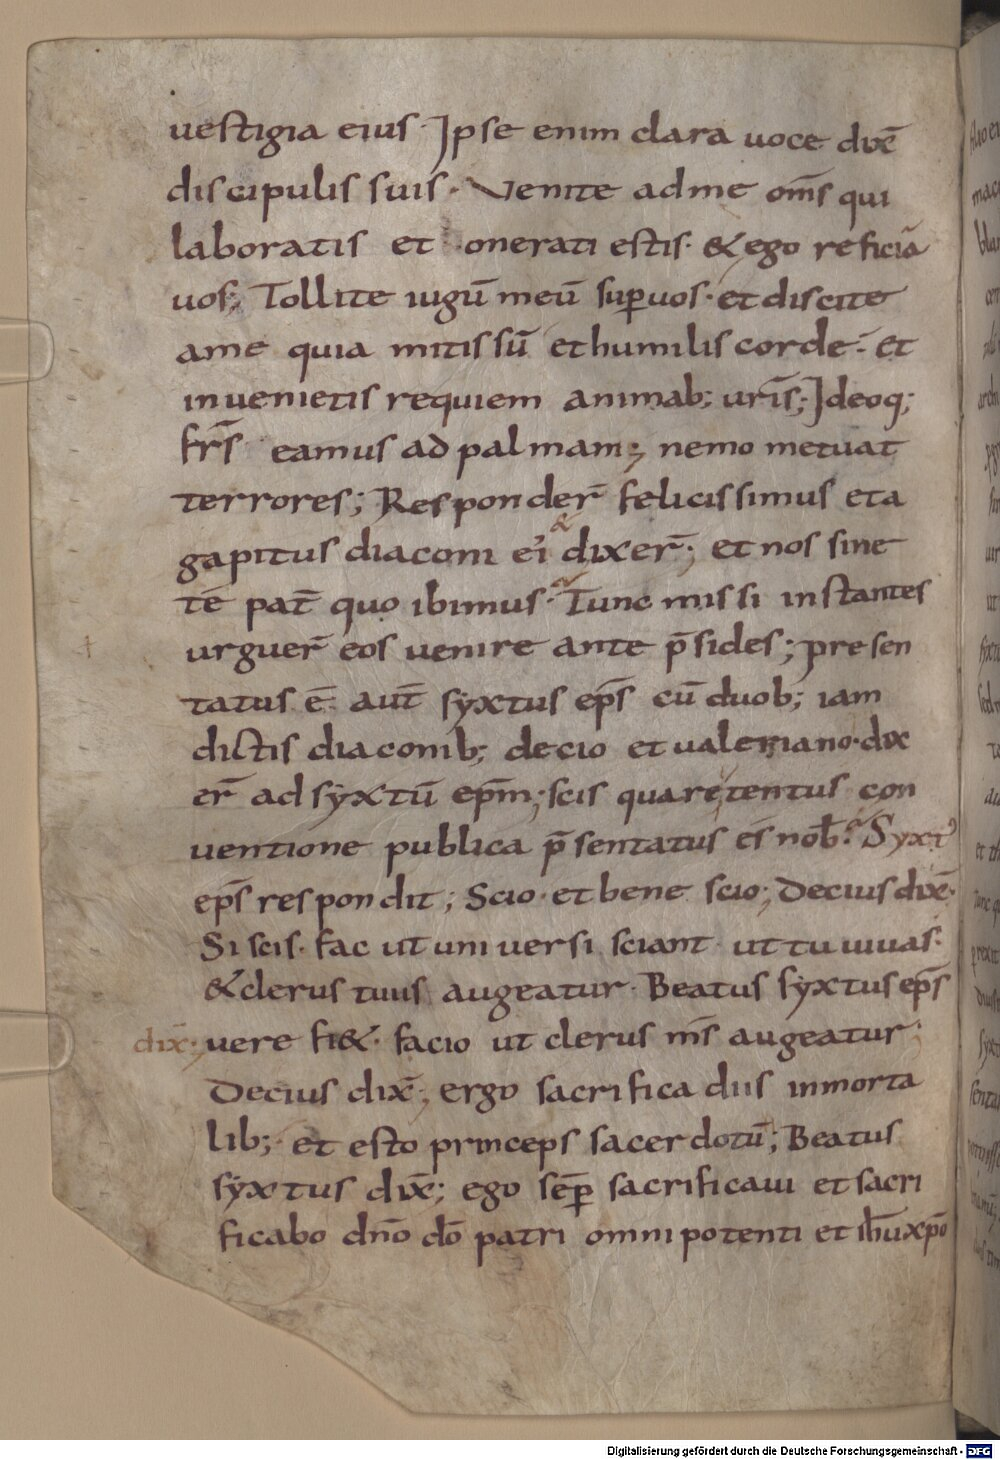 uestigia eius· Ipse enim clara uoce dix̄
discipulis suis· Venite ad me om̄s qui
laboratis et onerati estis· & ego reficiā
uos; Tollite iugū meū sup̄ uos· et discite
a me quia mitis sū et humilis corde· et
inuenietis requiem animab; ur̄is; Ideoq;
fr̄s eamus ad palmam; nemo metuat
terrores; Responder̄ felicissimus et a
&
gapitus diaconi ei dixer̄; et nos sine
te pat̄ quo ibimus· Tunc missi instantes
urguer̄ eos uenire ante p̄sides; presen
tatus ē aut̄ syxtus ep̄s cū duob; iam
dictis diaconib; decio et ualeriano· dix
er̄ ad syxtū ep̄m; scis quare tentus con
uentione publica p̄sentatus es nob̄· Syxt᾽
ep̄s respondit; Scio· et bene scio; Decius dix̄·
Si scis· fac ut uniuersi sciant ut tu uiuas·
& clerus tuus augeatur· Beatus syxtus ep̄s
dix̄; uere fi&· facio ut clerus m̄s augeatur;
Decius dix̄; ergo sacrifica diis inmorta
lib; et esto princeps sacerdotū; Beatus
syxtus dix̄; ego sēp̄ sacrificaui et sacri
ficabo dn̄o dō patri omnipotenti et ih̄u xp̄o
Digitalisierung gefördert durch die Deutsche Forschungsgemeinschaft - DFG